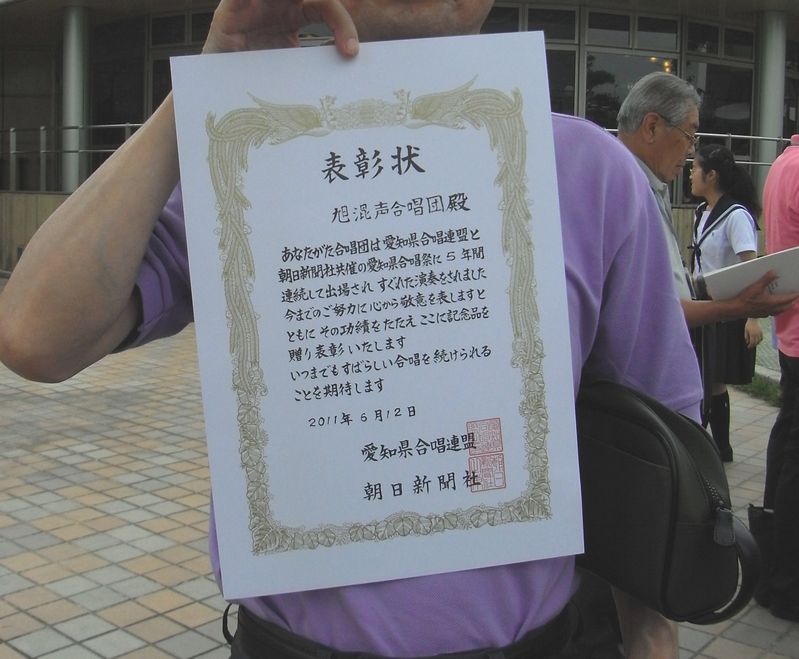 表彰状
旭混声合唱団殿
あなたがた合唱団は愛知県合唱連盟と
朝日新聞社共催の愛知県合唱祭に5年間
連続して出場され すぐれた演奏をされました
今までのご努力に心から敬意を表しますと
ともに その功績をたたえ ここに記念品を
贈り表彰いたします
いつまでもすばらしい合唱を続けられる
ことを期待します
2011年6月12日
愛知県合唱連盟
朝日新聞社